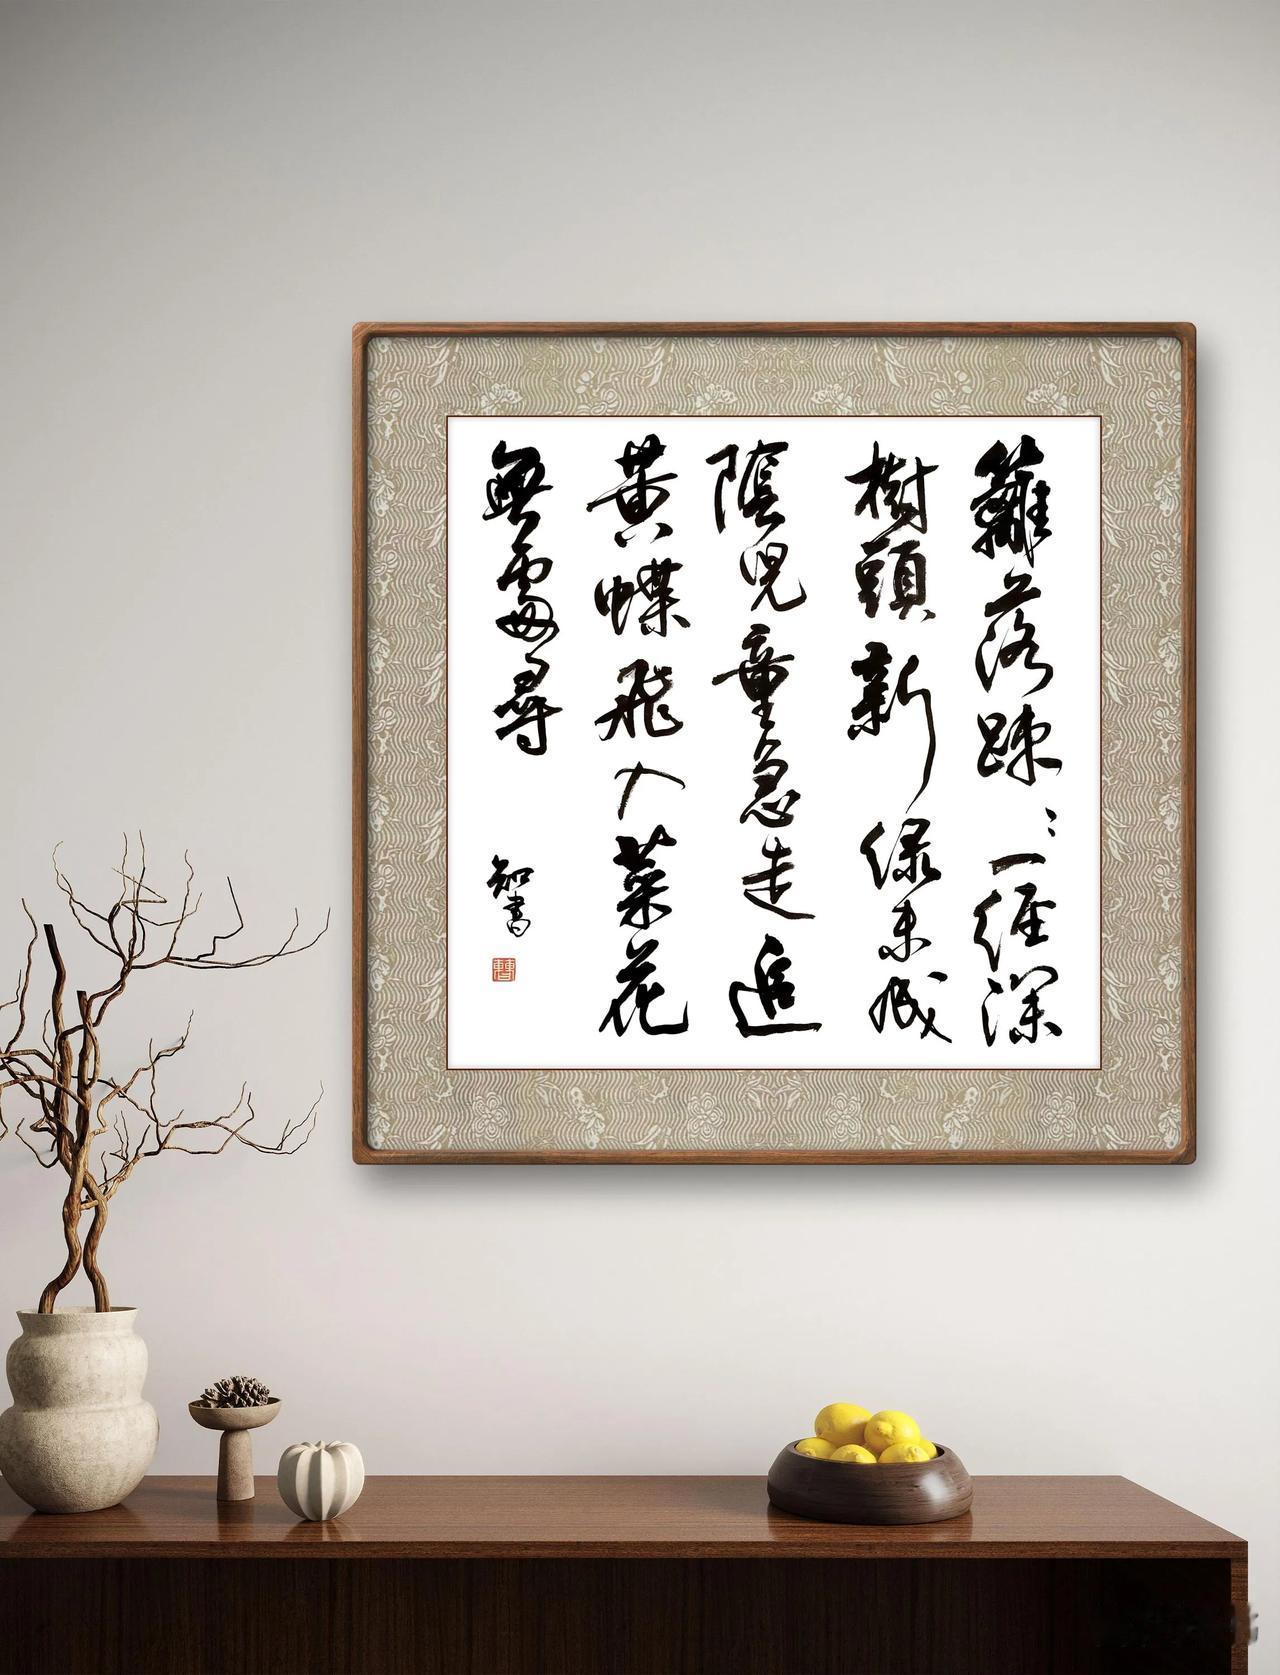 籬落踈〻一徑深
樹頭新綠未成
陰兒童急走追
黃蝶飛入菜花
無處尋
知書